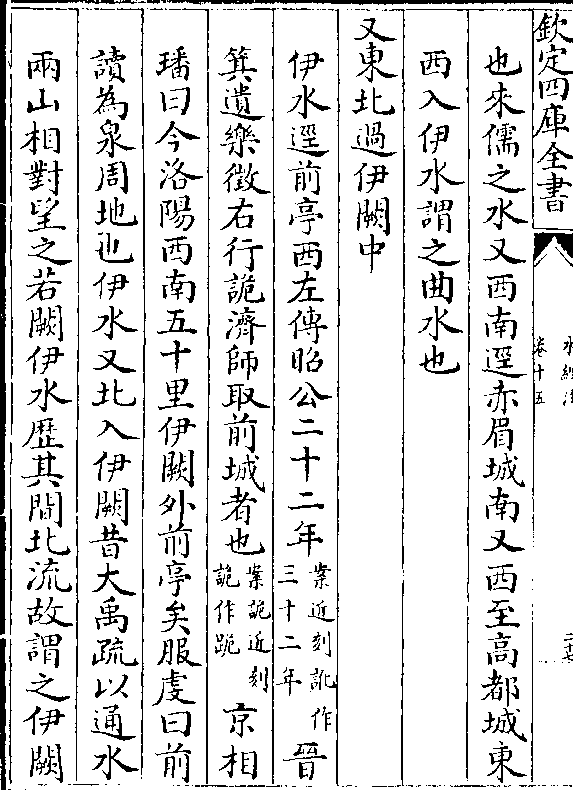 欽定四庫全書
水經注
卷十五
二十七
也來儒之水又西南逕赤眉城南又西至高都城東
西入伊水謂之曲水也
又東北過伊闕中
伊水逕前亭西左傳昭公二十二年案近刻訛作三十二年晉
箕遺樂徵右行詭濟師取前城者也案詭近刻詭作跪京相
璠曰今洛陽西南五十里伊闕外前亭矣服虔曰前
讀為泉周地也伊水又北入伊闕昔大禹疏以通水
兩山相對望之若闕伊水歴其間北流故謂之伊闕